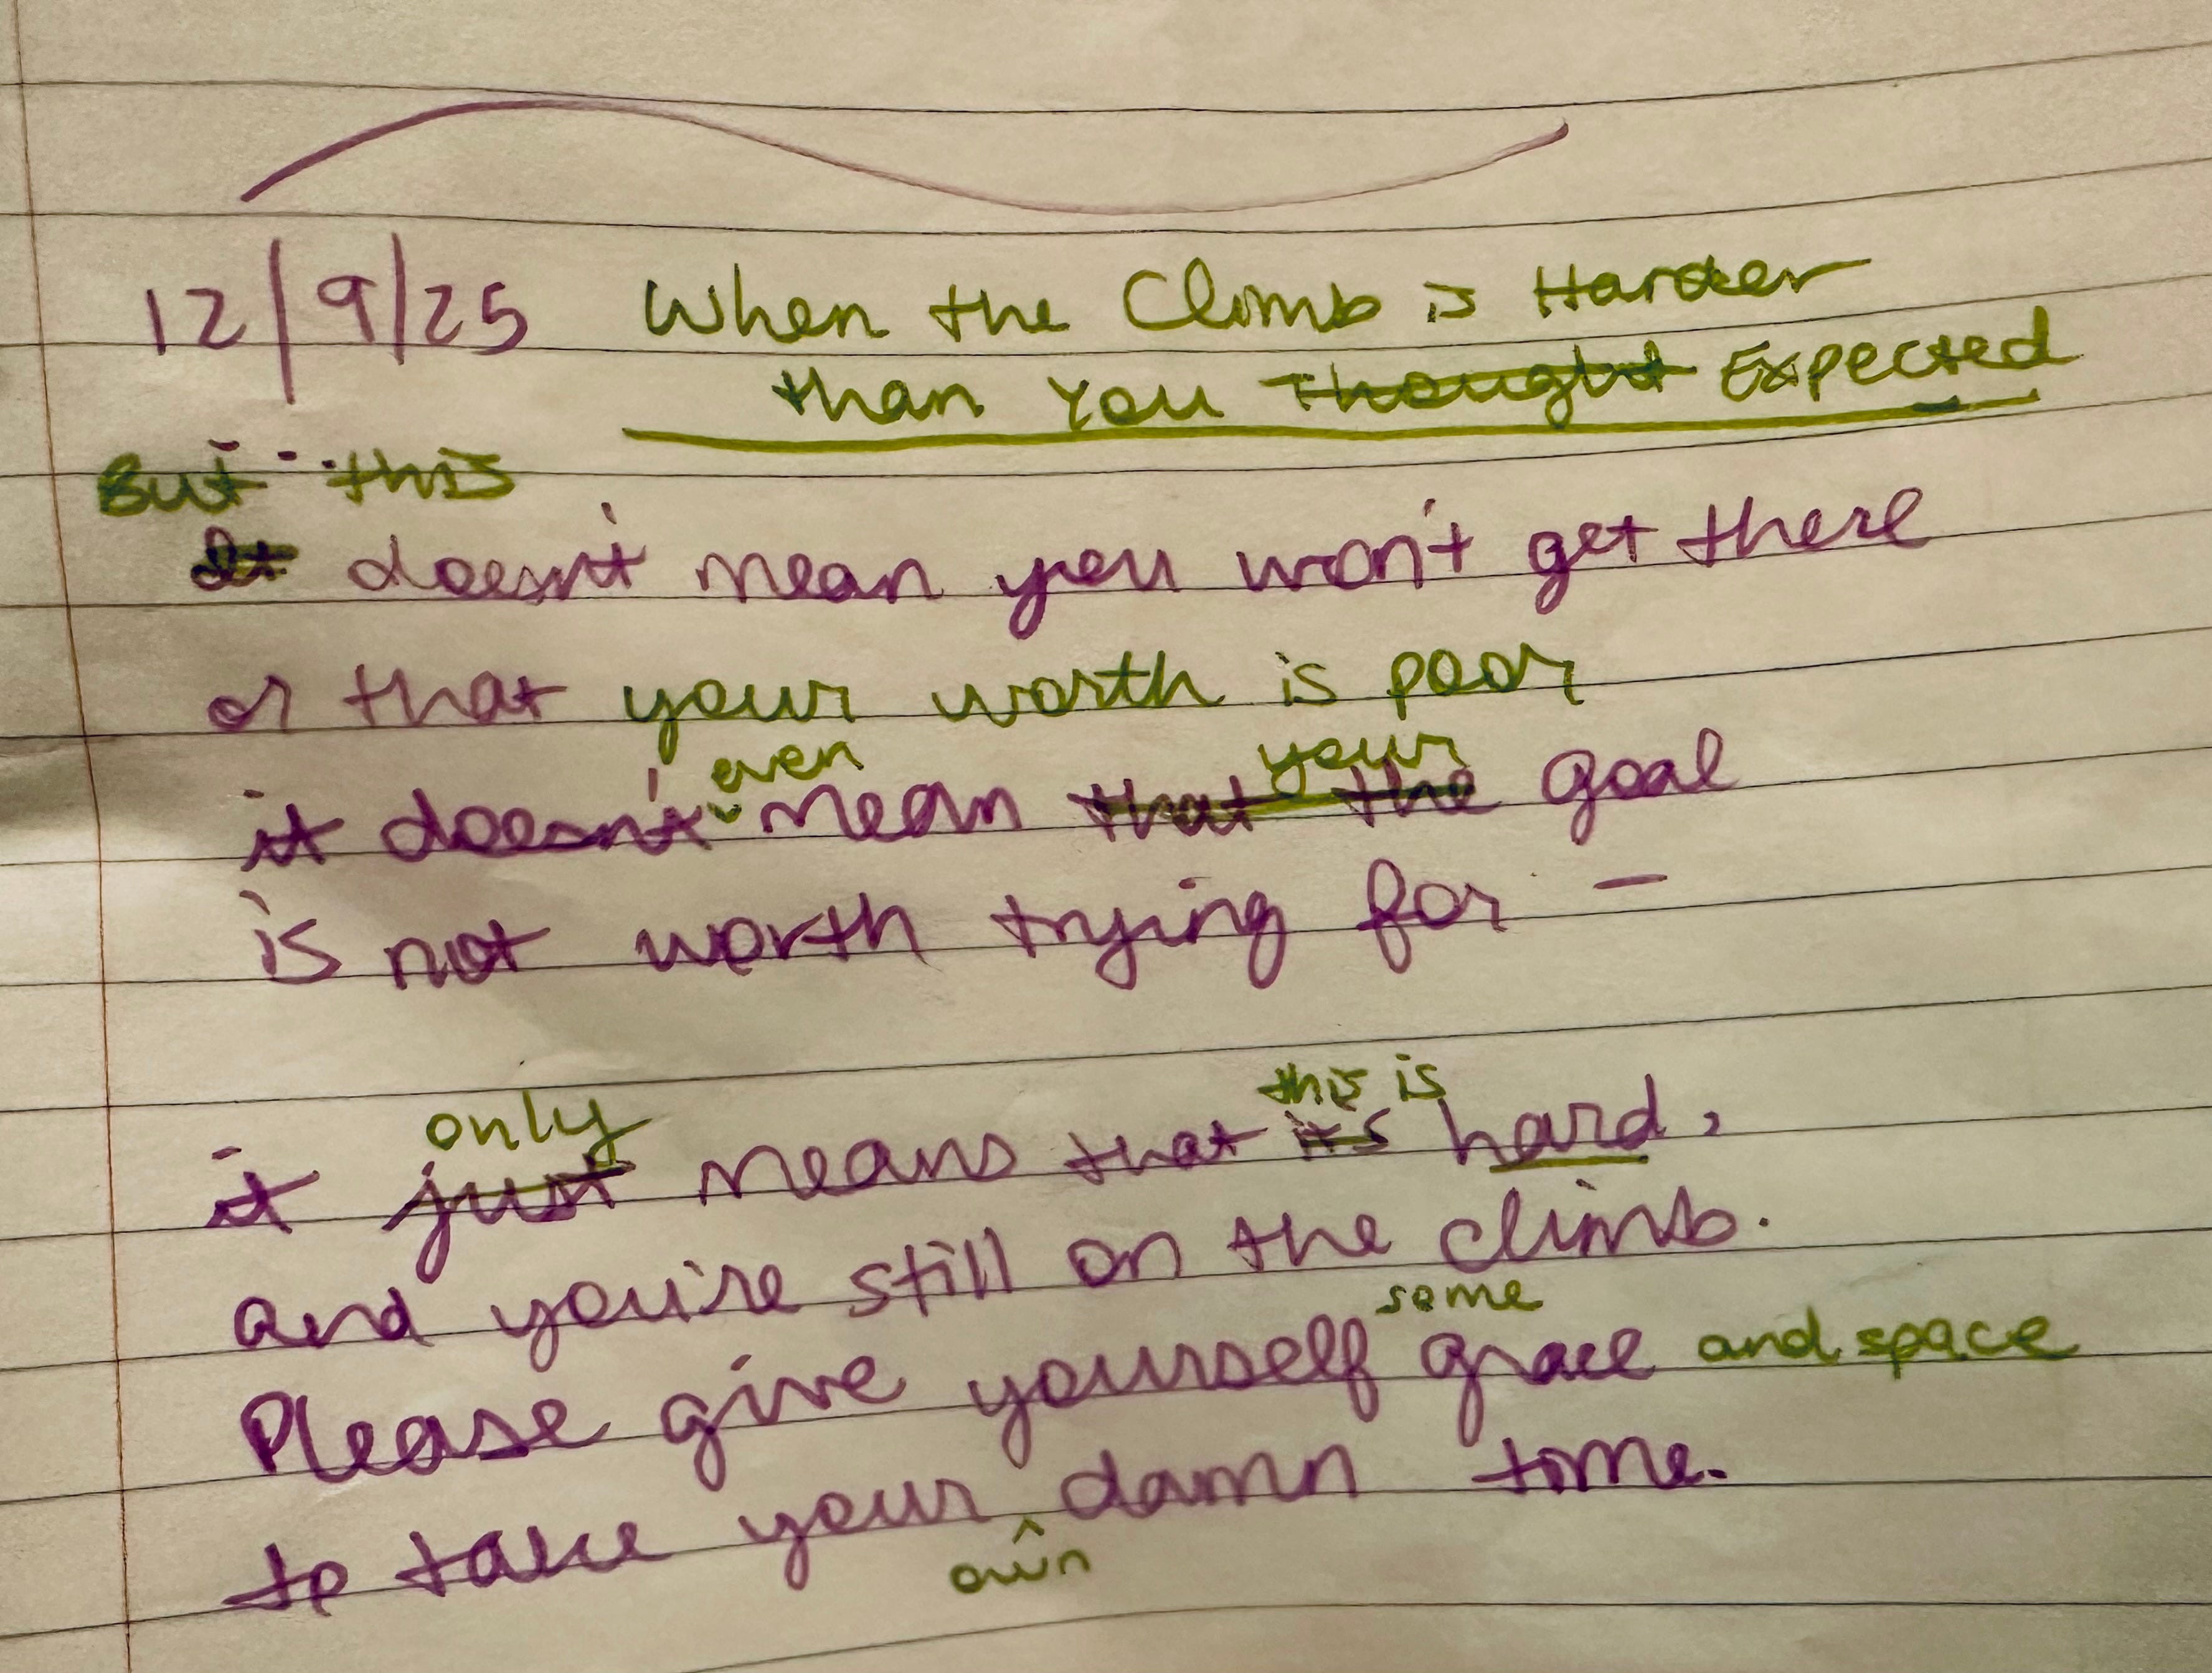 12/9/25 When the Climb is Harder
than You Thought Expected
But this
It doesn't mean you won't get there
or that your worth is poor
even your
it doesn't mean that the goal
is not worth trying for –
only this is
it just means that its hard,
and you're still on the climb.
some
Please give yourself grace and space
to take your damn time.
own